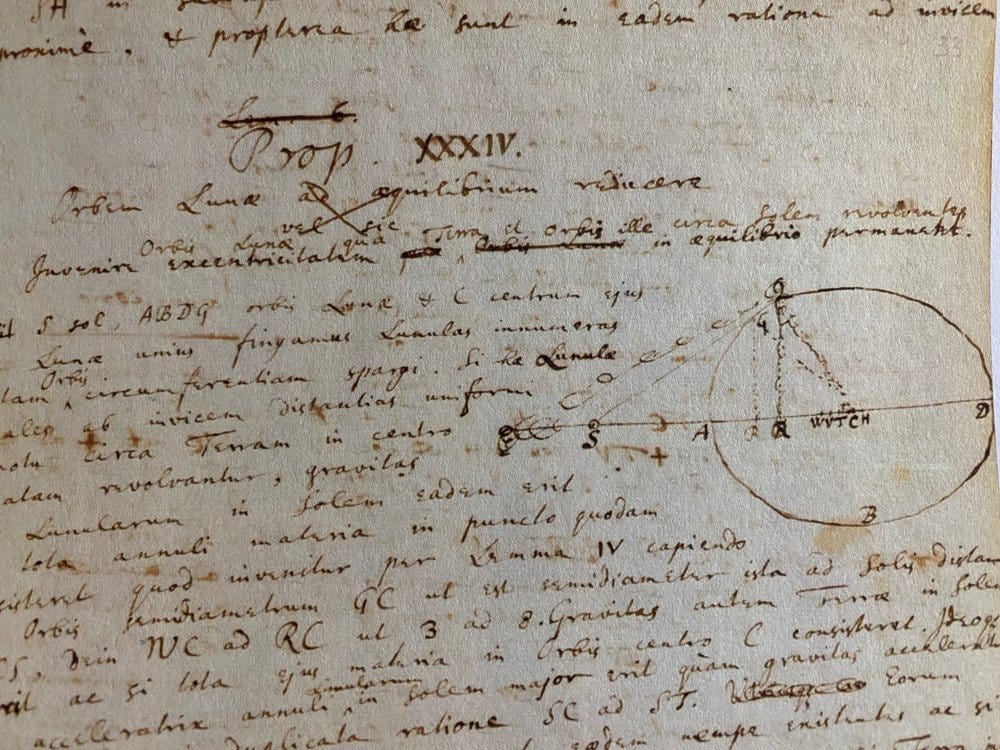 SH in
proximè. & propterea hæ sunt in eadem ratione ad invicem
33
Prop. XXXIV.
Orbem Lunæ ad æquilibrium reducere
vel sic
Orbis Lunæ quâ Terra et Orbis ille circa Solem revolventes
Invenire excentricitatem in æquilibrio permanent.
S sol, ABDG orbis Lunæ, & C centrum ejus
Lunæ unius fingamus Lunulas innumeras
tam Orbis circumferentiam spargi. Si hæ Lunulæ
ales ab invicem distantias uniformi
otu circa Terram in centro
atam revolvantur, gravitas
Lunularum in Solem eadem erit
tota annuli materia in puncto quodam
sisteret quod invenitur per Lemma IV capiendo
Orbis semidiametrum GC ut est semidiameter ista ad Solis distan
CS, Dein NC ad RC ut 3 ad 8. Gravitas autem Terræ in Solem
erit ac si tota ejus materia in Orbis centro C consisteret. Ideoq
acceleratrix annuli Lunularum in Solem major erit quam gravitas accelerat
duplicata ratione SC ad ST. Eorum
eædem nempe existentes ac si
G
S
A
R
H
D
B